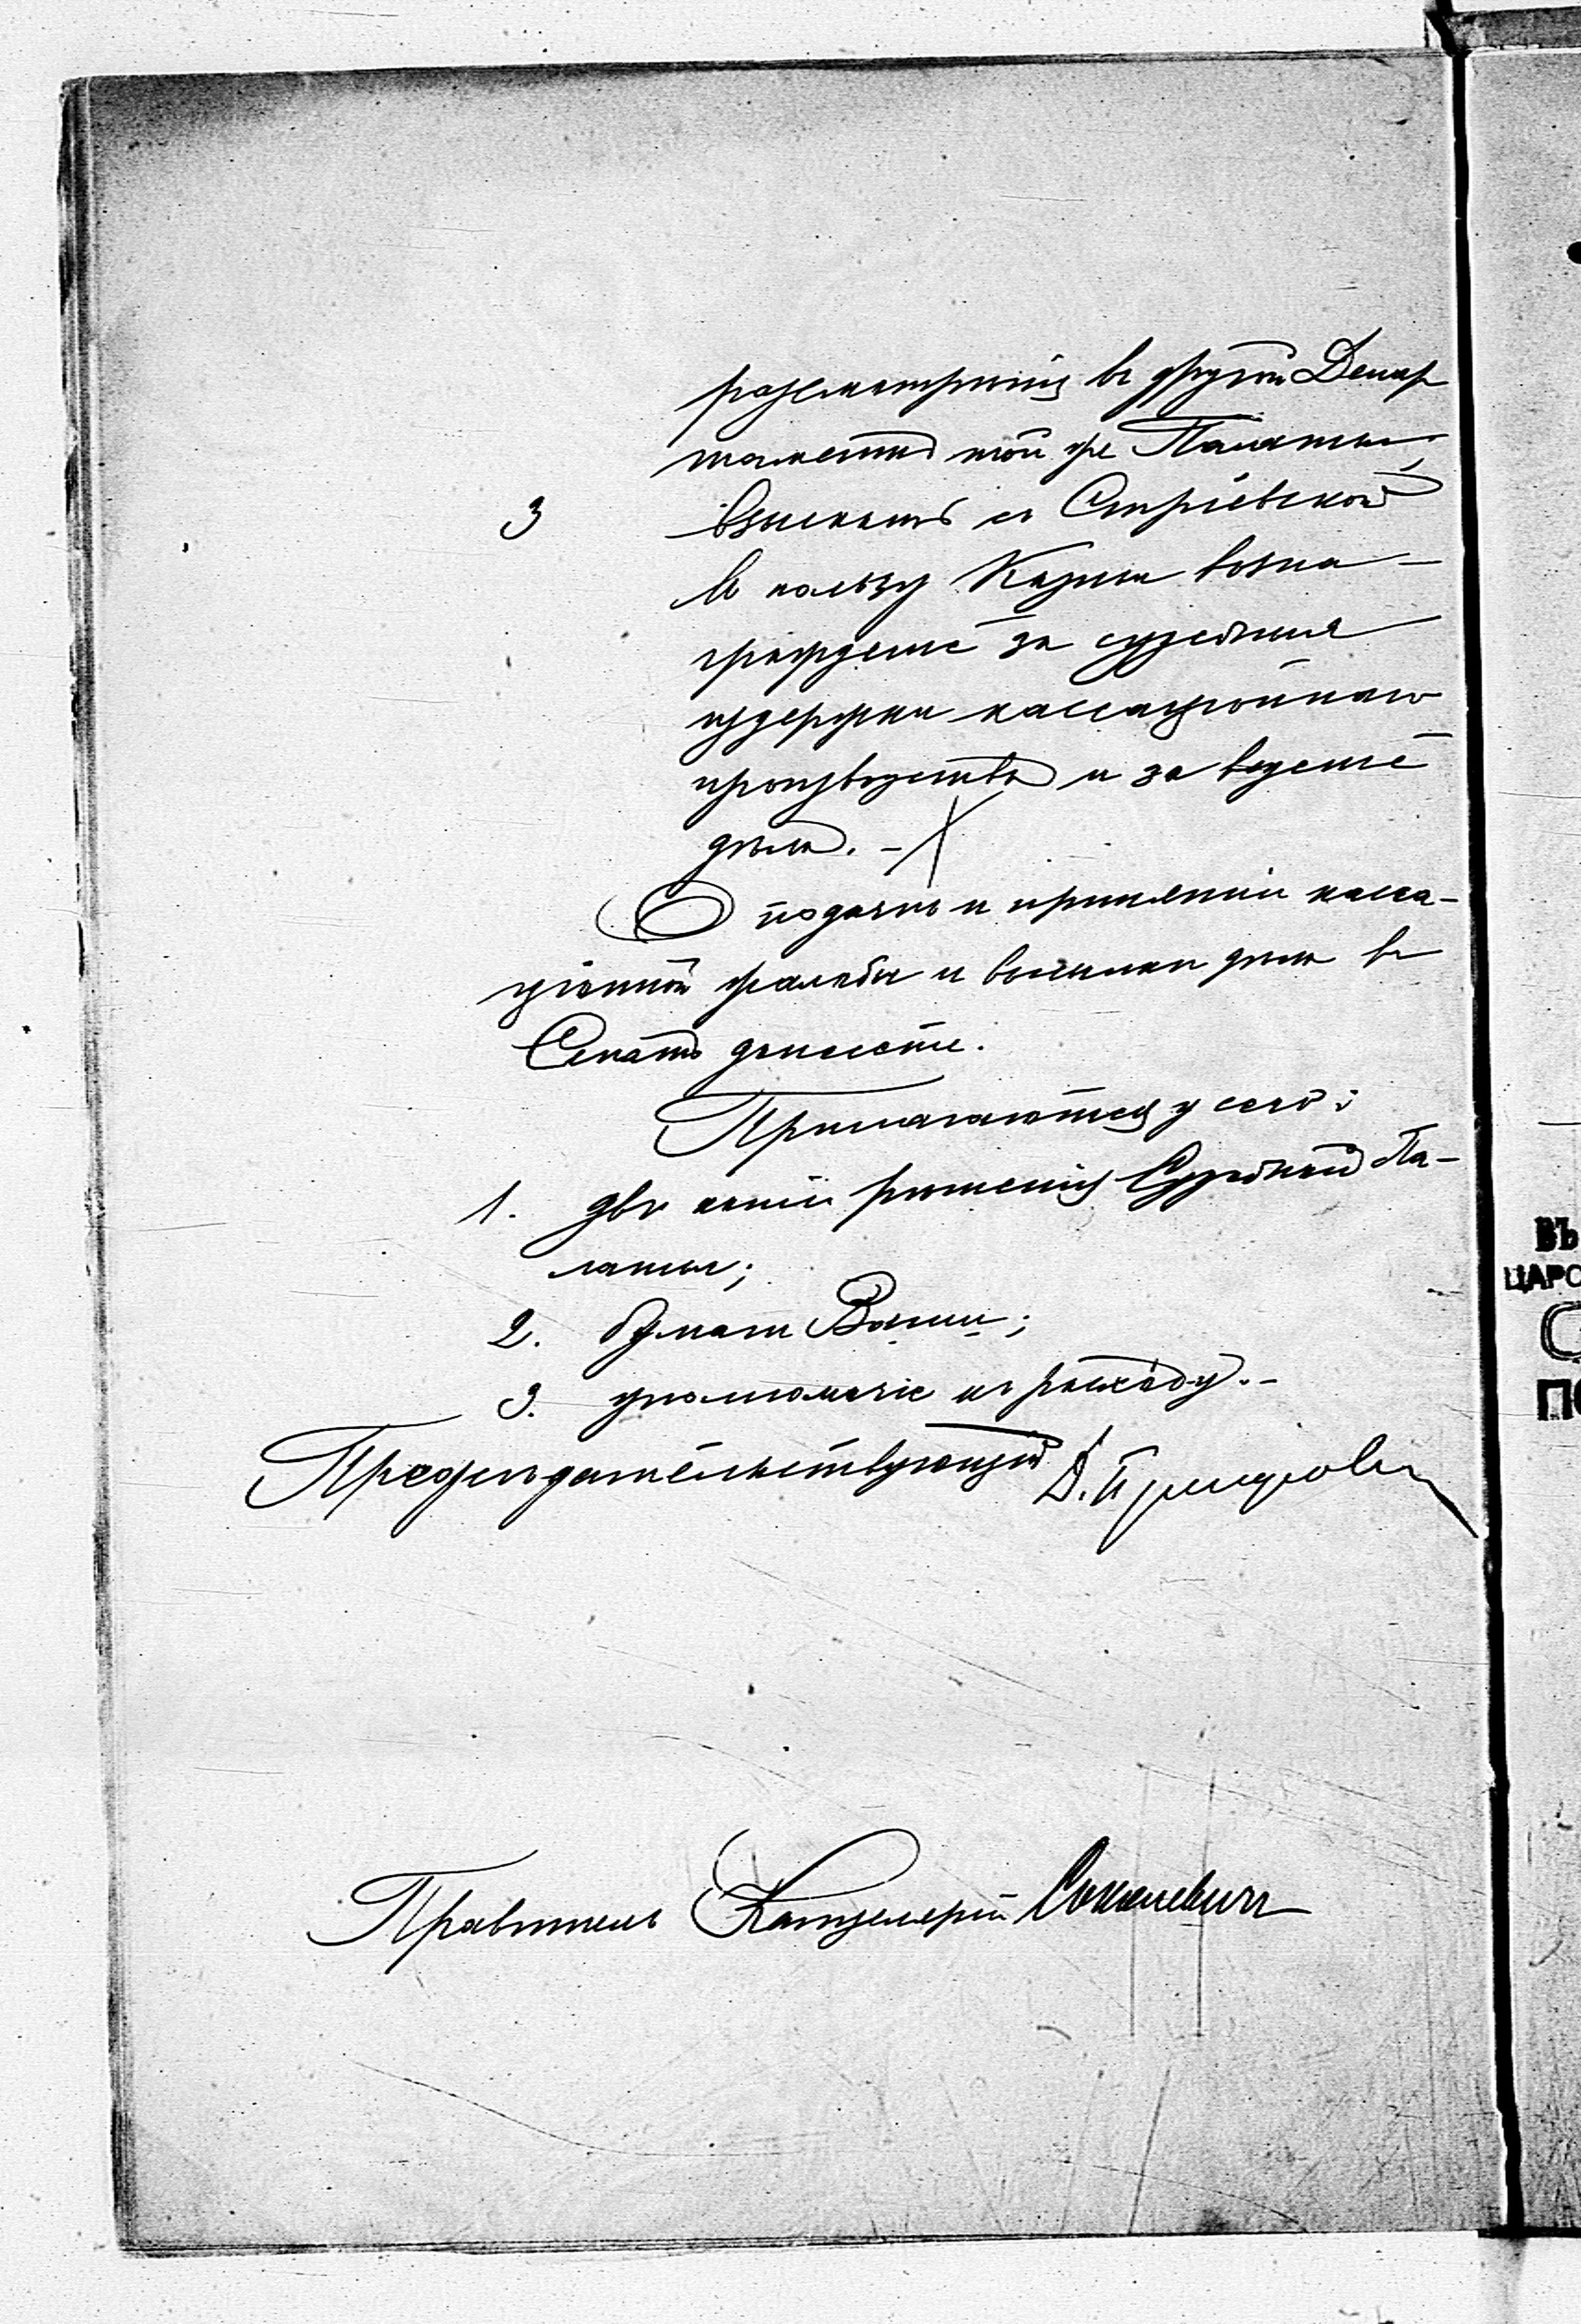 разсмотрѣнія въ другой Депар
таментъ той же Палаты,
3 взыскать съ Стріевской
въ пользу Казны возна-
гражденіе за судебныя
издержки кассаціоннаго
производства и за веденіе
дѣла. -
О подачѣ и принятіи касса-
ціонной жалобы и высылки дѣла въ
Сенатъ донести.
Прилагаются у сего:
1. двѣ копіи рѣшенія Судебной Па-
латы;
2. бумаги
3. къ расходу. -
Предсѣдательствующій Д.
Правитель Канцеляріи
ВЪ
ЦАРС
С
ПО